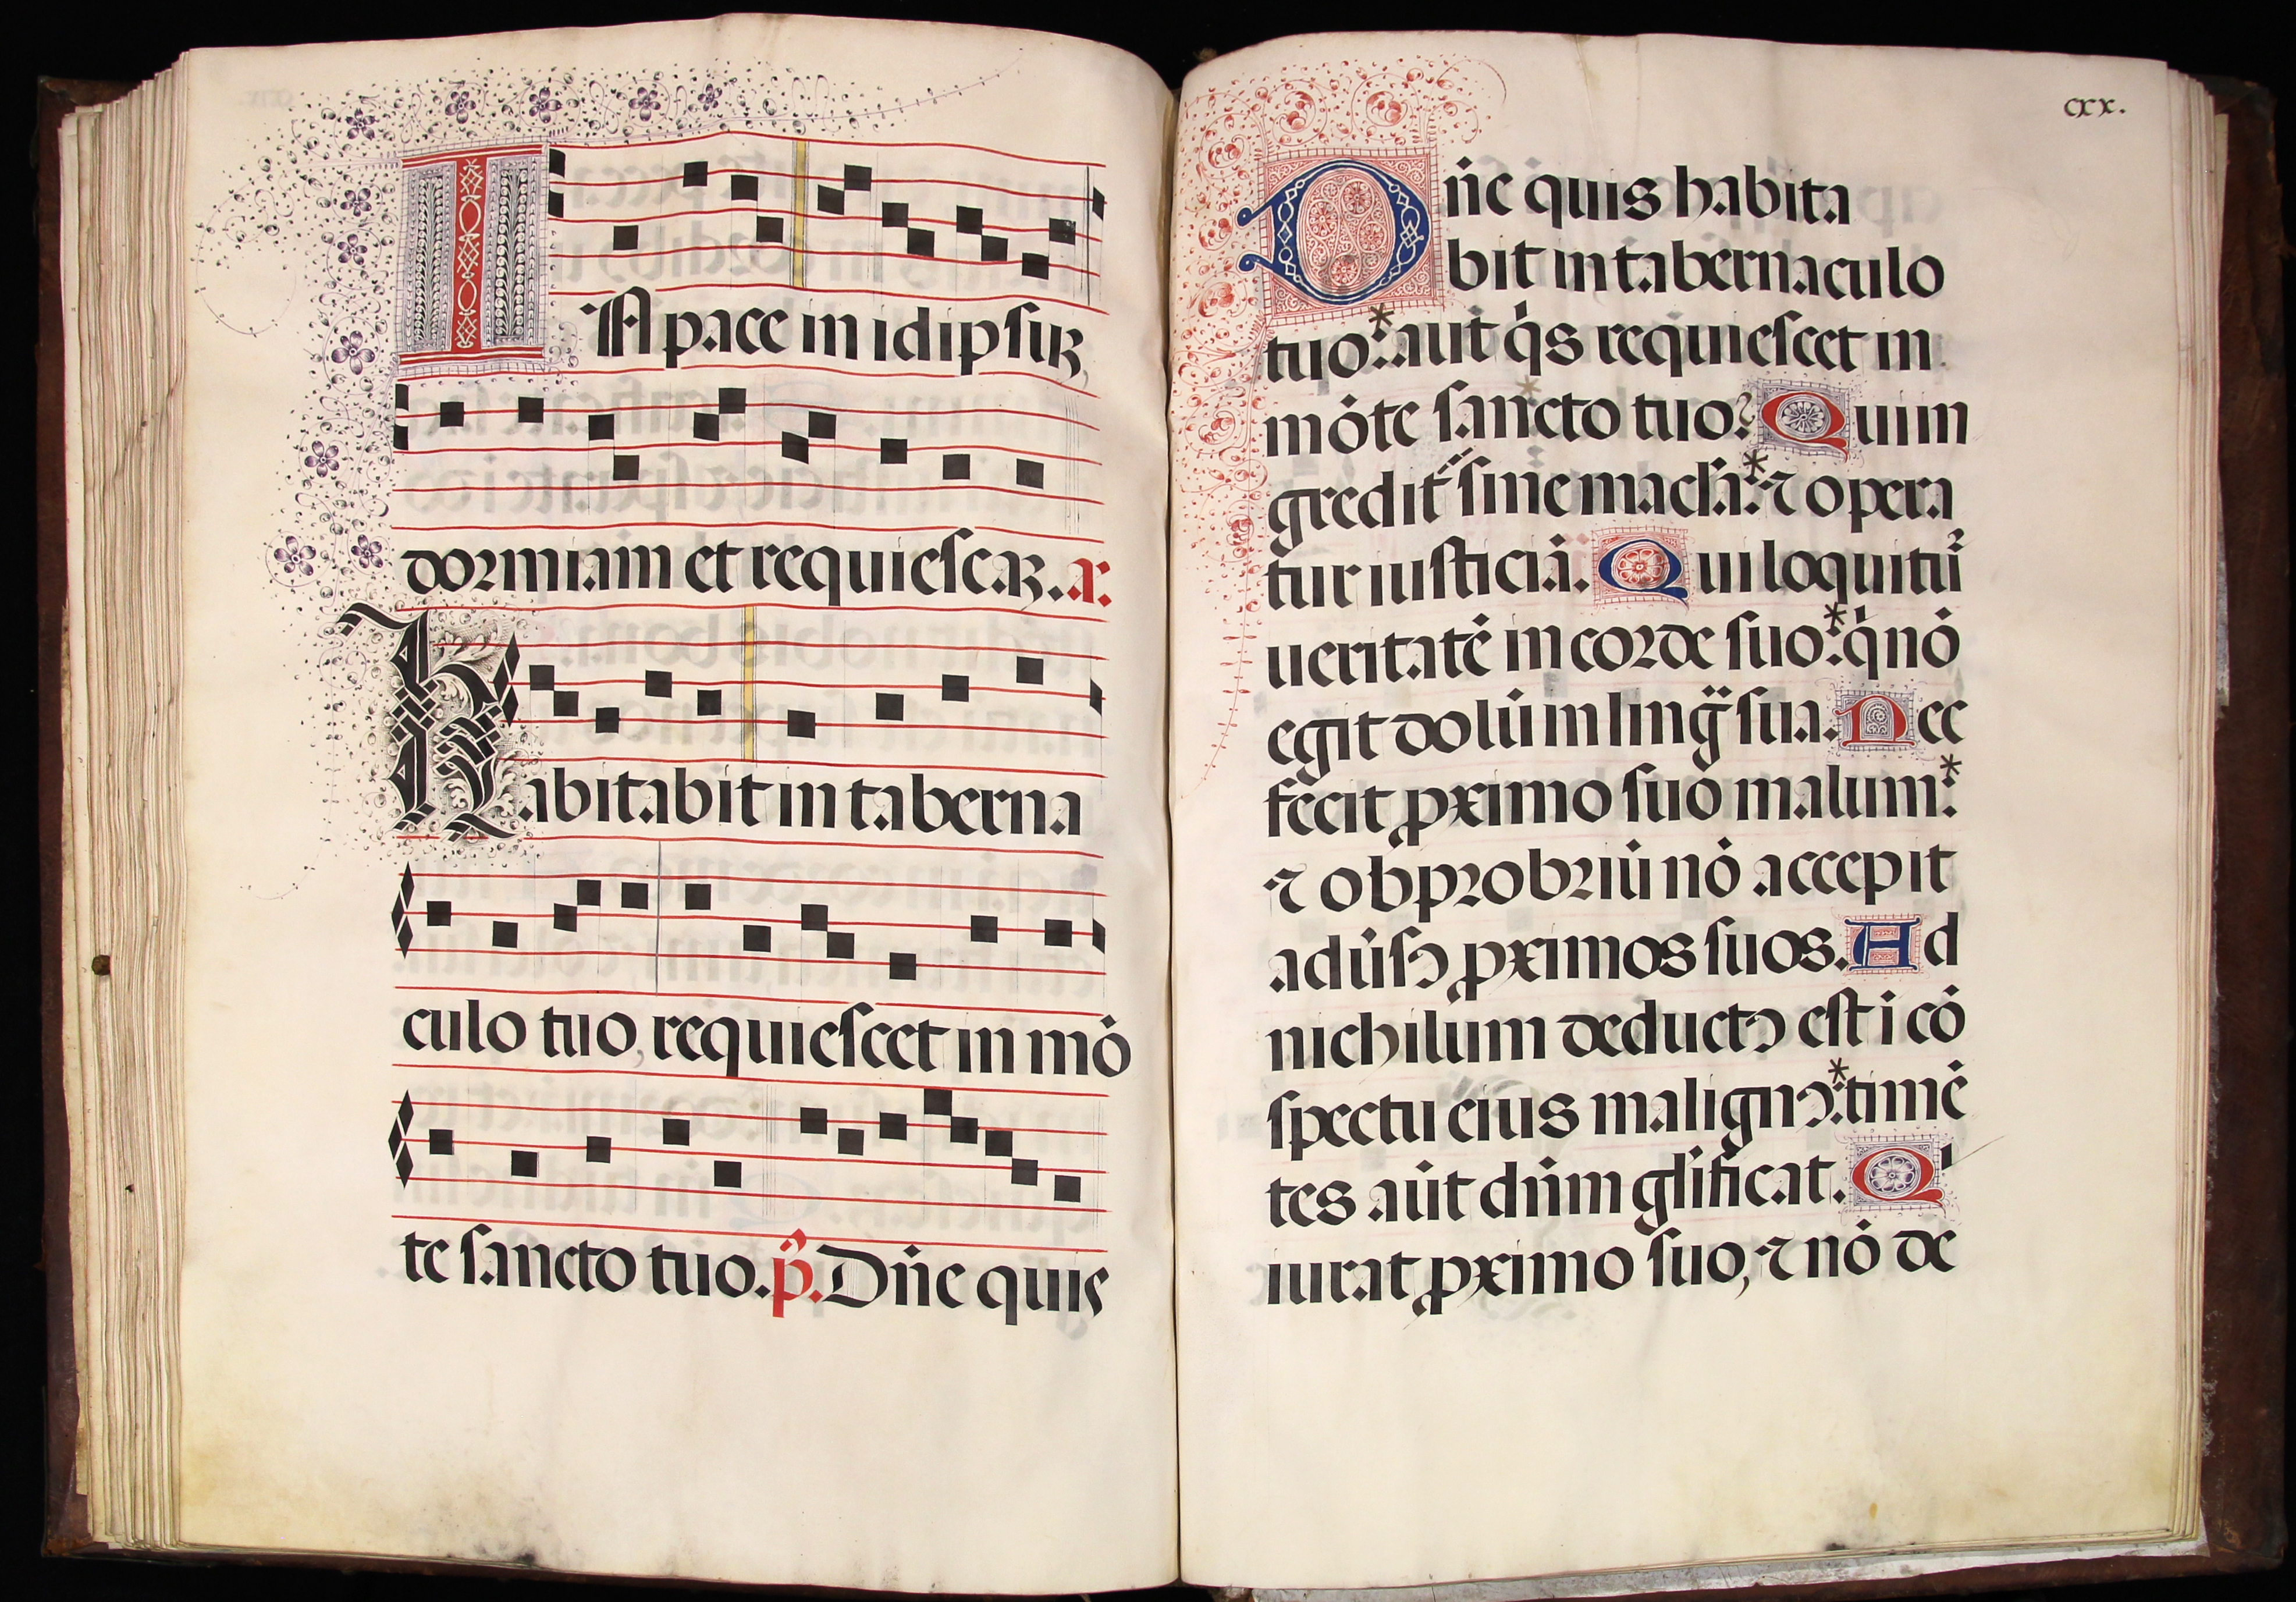 IN pace in idipsuꝫ
dormiam et requiescaꝫ. a.
Habitabit in taberna
culo tuo, requiescet in mō
te sancto tuo. p̄. Dn̄e quis
cxx.
Dn̄e quis habita
bit in tabernaculo
tuo:* aut q̇s requiescet in
mōte sancto tuo? Qui in
gredit᷑ sine macl̄a:* ⁊ opera
tur iusticiā. Qui loquitu᷑
ueritatē in corde suo:* q̇ nō
egit dolū in ling̈ sua. Nec
fecit ꝓximo suo malum:*
⁊ obprobriū nō accepit
adu̇sꝰ ꝓximos suos. Ad
nichilum deductꝰ est i cō
spectu eius malignꝰ:* timē
tes aūt dn̄m gl̄ificat. Q'
iurat ꝓximo suo, ⁊ nō de